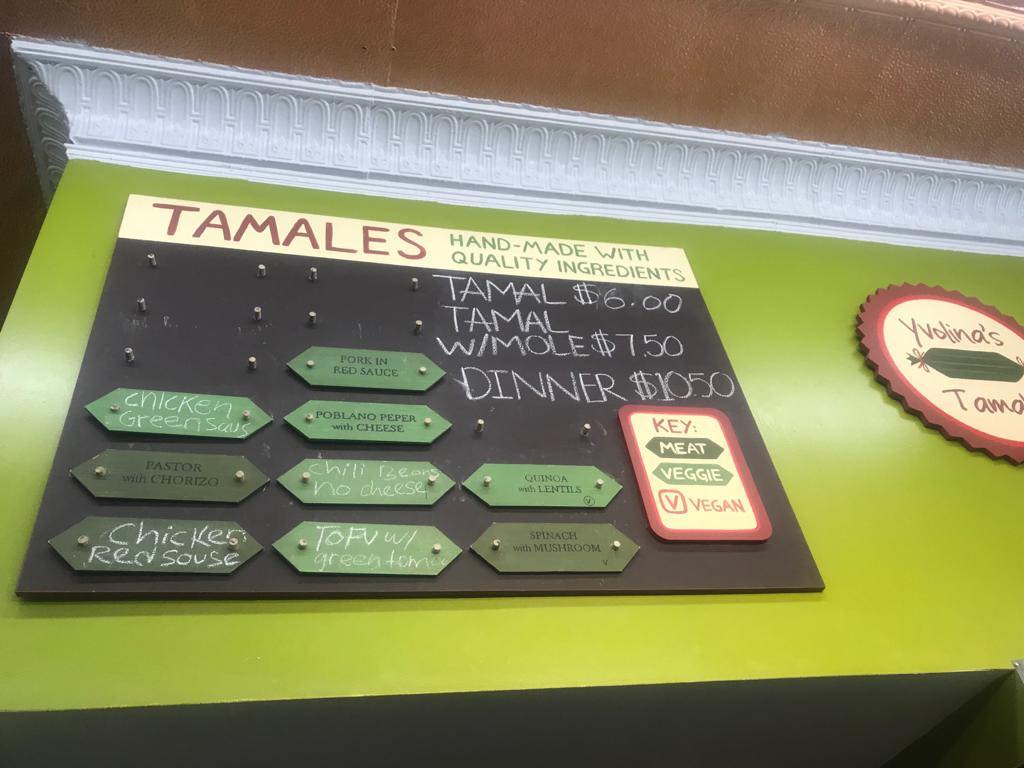 TAMALES
HAND-MADE WITH
QUALITY INGREDIENTS
TAMAL $6.00
TAMAL
W/MOLE $7.50
DINNER $10.50
PORK IN
RED SAUCE
Chicken
Green saus
POBLANO PEPER
with CHEESE
PASTOR
with CHORIZO
chili Beans
no cheese
QUINOA
with LENTILS
V
Chicken
Red souse
TOFU W/
green toma
SPINACH
with MUSHROOM
V
KEY:
MEAT
VEGGIE
V VEGAN
Yvolina's
Tama